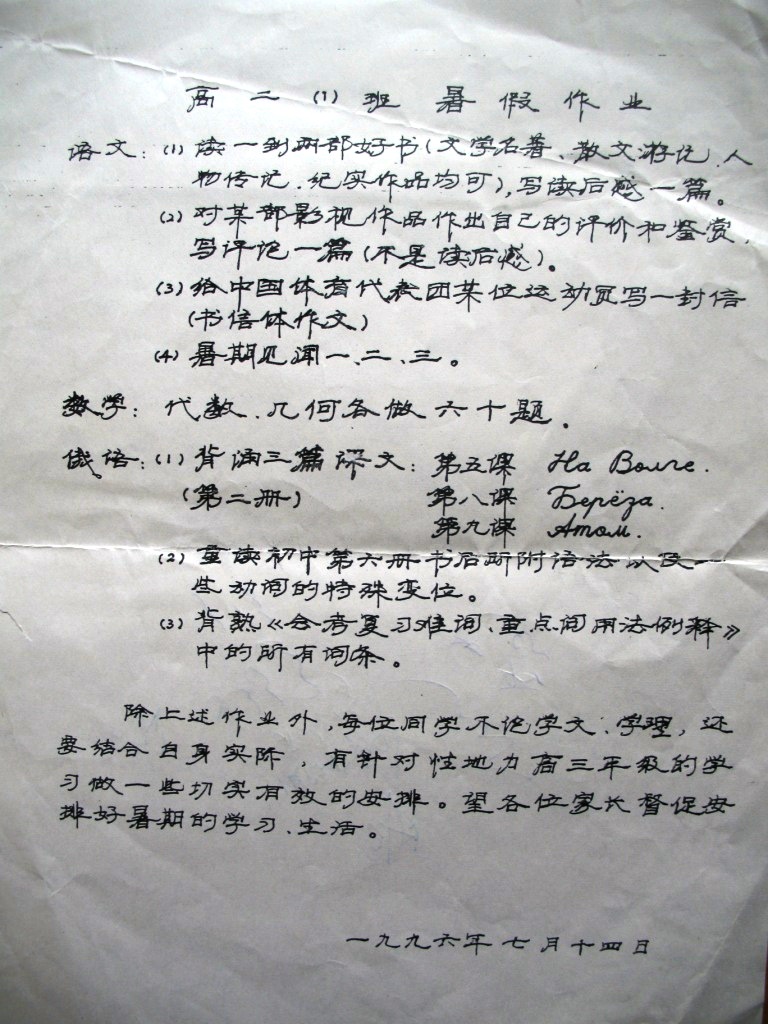 高二(1)班暑假作业
语文：(1) 读一到两部好书(文学名著、散文游记、人
物传记、纪实作品均可)，写读后感一篇。
(2) 对某部影视作品作出自己的评价和鉴赏，
写评论一篇(不是读后感)。
(3) 给中国体育代表团某位运动员写一封信
(书信体作文)
(4) 暑期见闻一、二、三。
数学：代数、几何各做六十题.
俄语：(1) 背诵三篇课文：第五课 На Волге.
(第二册) 第八课 Берёза.
第九课 Атом.
(2) 重读初中第六册书后所附语法以及一
些动词的特殊变位。
(3) 背熟《会考复习难词、重点词用法例释》
中的所有词条。
除上述作业外，每位同学不论学文、学理，还
要结合自身实际，有针对性地为高三年级的学
习做一些切实有效的安排。望各位家长督促安
排好暑期的学习、生活。
一九九六年七月十四日